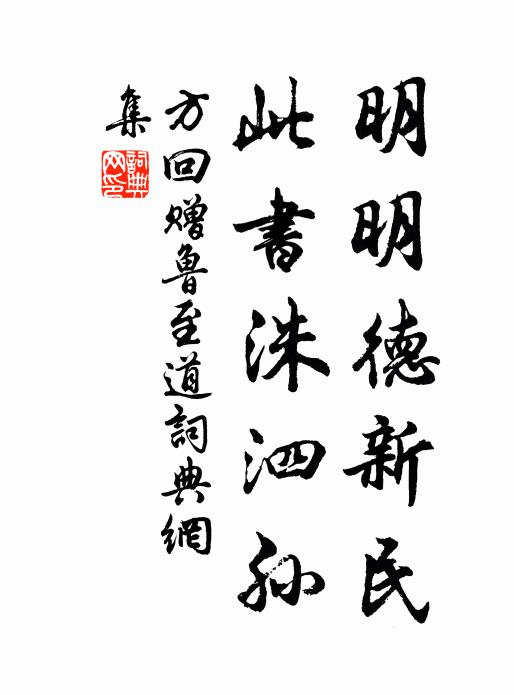 明明德新民
此書洙泗孫
方回贈魯至道詞典網
集
詞典
网印